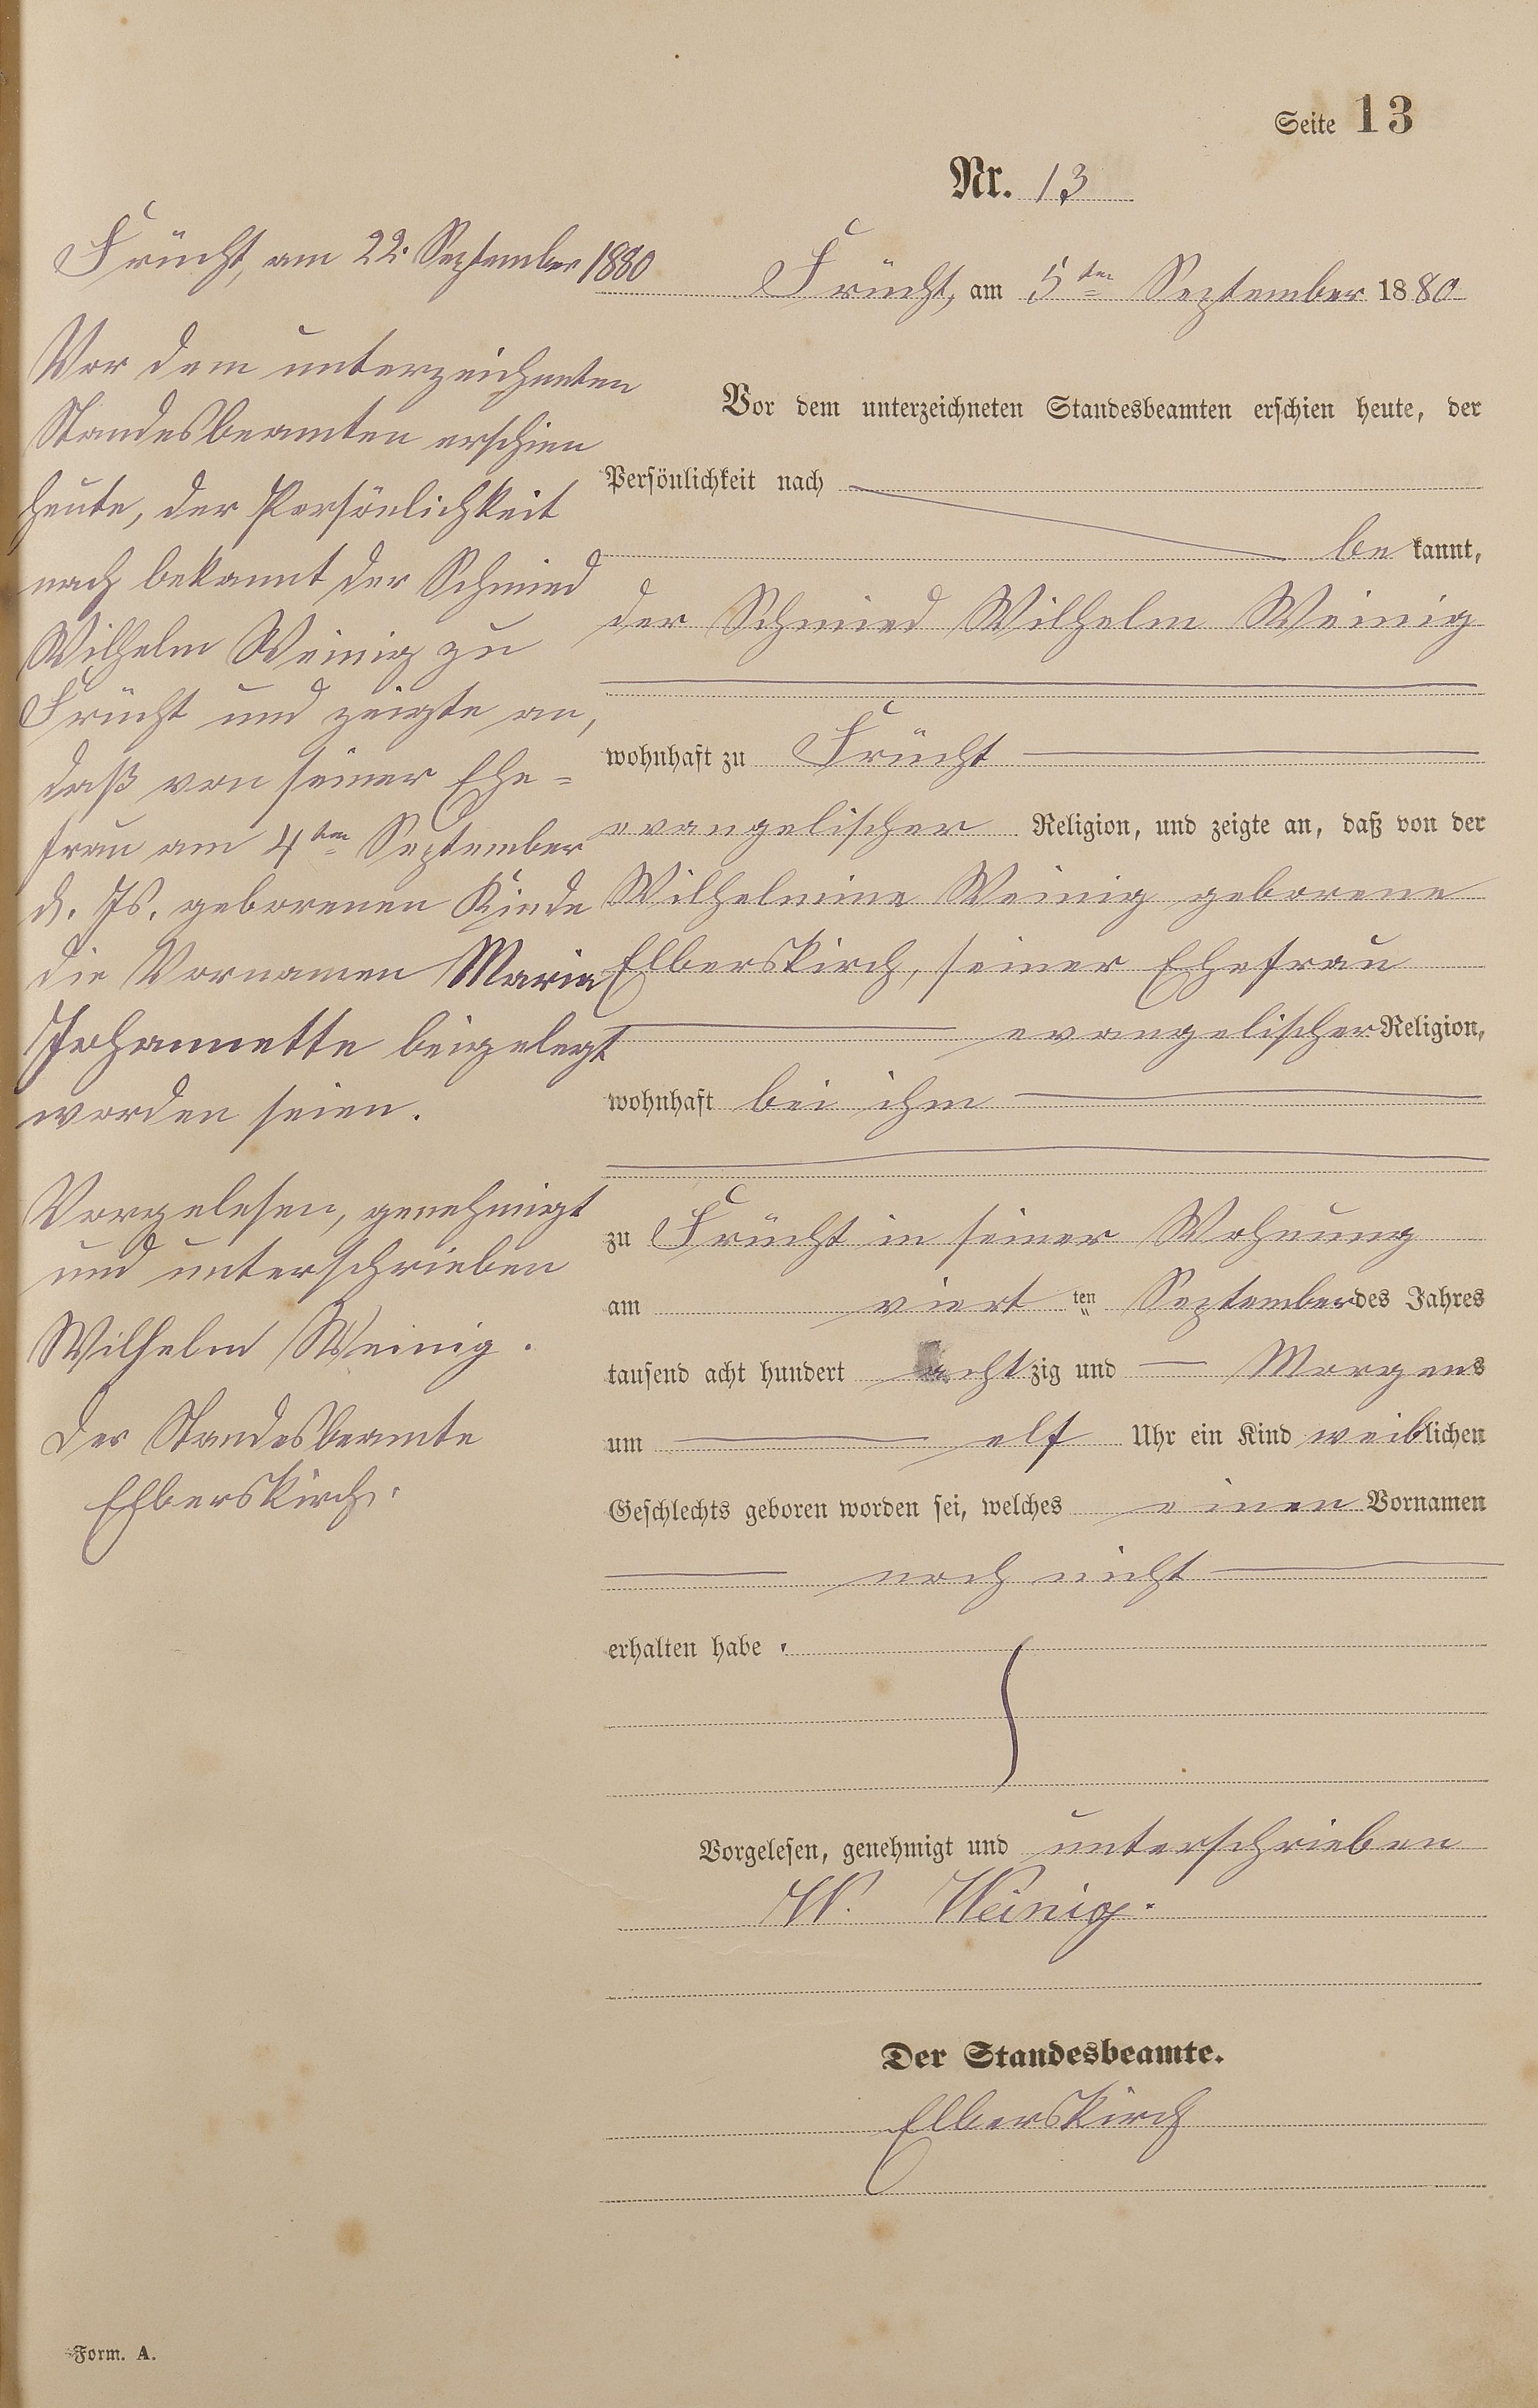 Seite 13
Nr. 13
Frücht, am 22. September 1880
Vor dem unterzeichneten
Standesbeamten erschien
heute, der Persönlichkeit
nach bekannt der Schmied
Wilhelm Weinig zu
Frücht und zeigte an,
daß von seiner Ehe=
frau am 4ten September
d. Js. geborenen Kinde
die Vornamen Maria
Johannette beigelegt
worden seien.
Vorgelesen, genehmigt
und unterschrieben
Wilhelm Weinig.
Der Standesbeamte
Elberskirch.
Frücht, am 5ten September 1880
Vor dem unterzeichneten Standesbeamten erschien heute, der
Persönlichkeit nach
bekannt,
der Schmied Wilhelm Weinig
wohnhaft zu Frücht
evangelischer Religion, und zeigte an, daß von der
Wilhelmine Weinig geborene
Elberskirch, seiner Ehefrau
evangelischer Religion,
wohnhaft bei ihm
zu Frücht in seiner Wohnung
am viert ten September des Jahres
tausend acht hundert achtzig und Morgens
um elf Uhr ein Kind weiblichen
Geschlechts geboren worden sei, welches einen Vornamen
noch nicht
erhalten habe.
Vorgelesen, genehmigt und unterschrieben
W. Weinig.
Der Standesbeamte.
Elberskirch
Form. A.